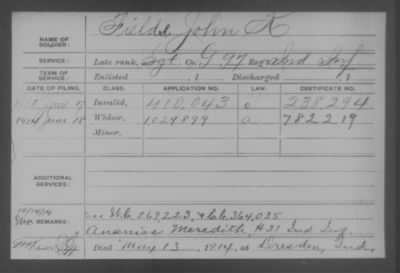 NAME OF SOLDIER: Fields, John K
SERVICE: Late rank, Sgt Co. G 97 Reg't Ind Inf
TERM OF SERVICE: Enlisted , 1 Discharged , 1
DATE OF FILING. CLASS. APPLICATION NO. LAW. CERTIFICATE NO.
Invalid, 410,043 238,294
1914 June 18 Widow, 1,029,899 782219
Minor,
ADDITIONAL SERVICES:
REMARKS: W.C. 269,223, & C.C. 364,035
Meredith, H 31 Ind Inf.
Died May 13, 1914, at Dresden, Ind.